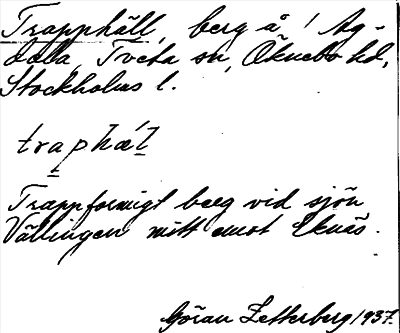 Trapphäll, berg å ! Ag-
dala, Tveta sn, Öknebo hd,
Stockholms l.
traphæ̀l
Trappformigt berg vid sjön
Vällingen mitt emot Eknäs.
Göran Zetterberg 1937.